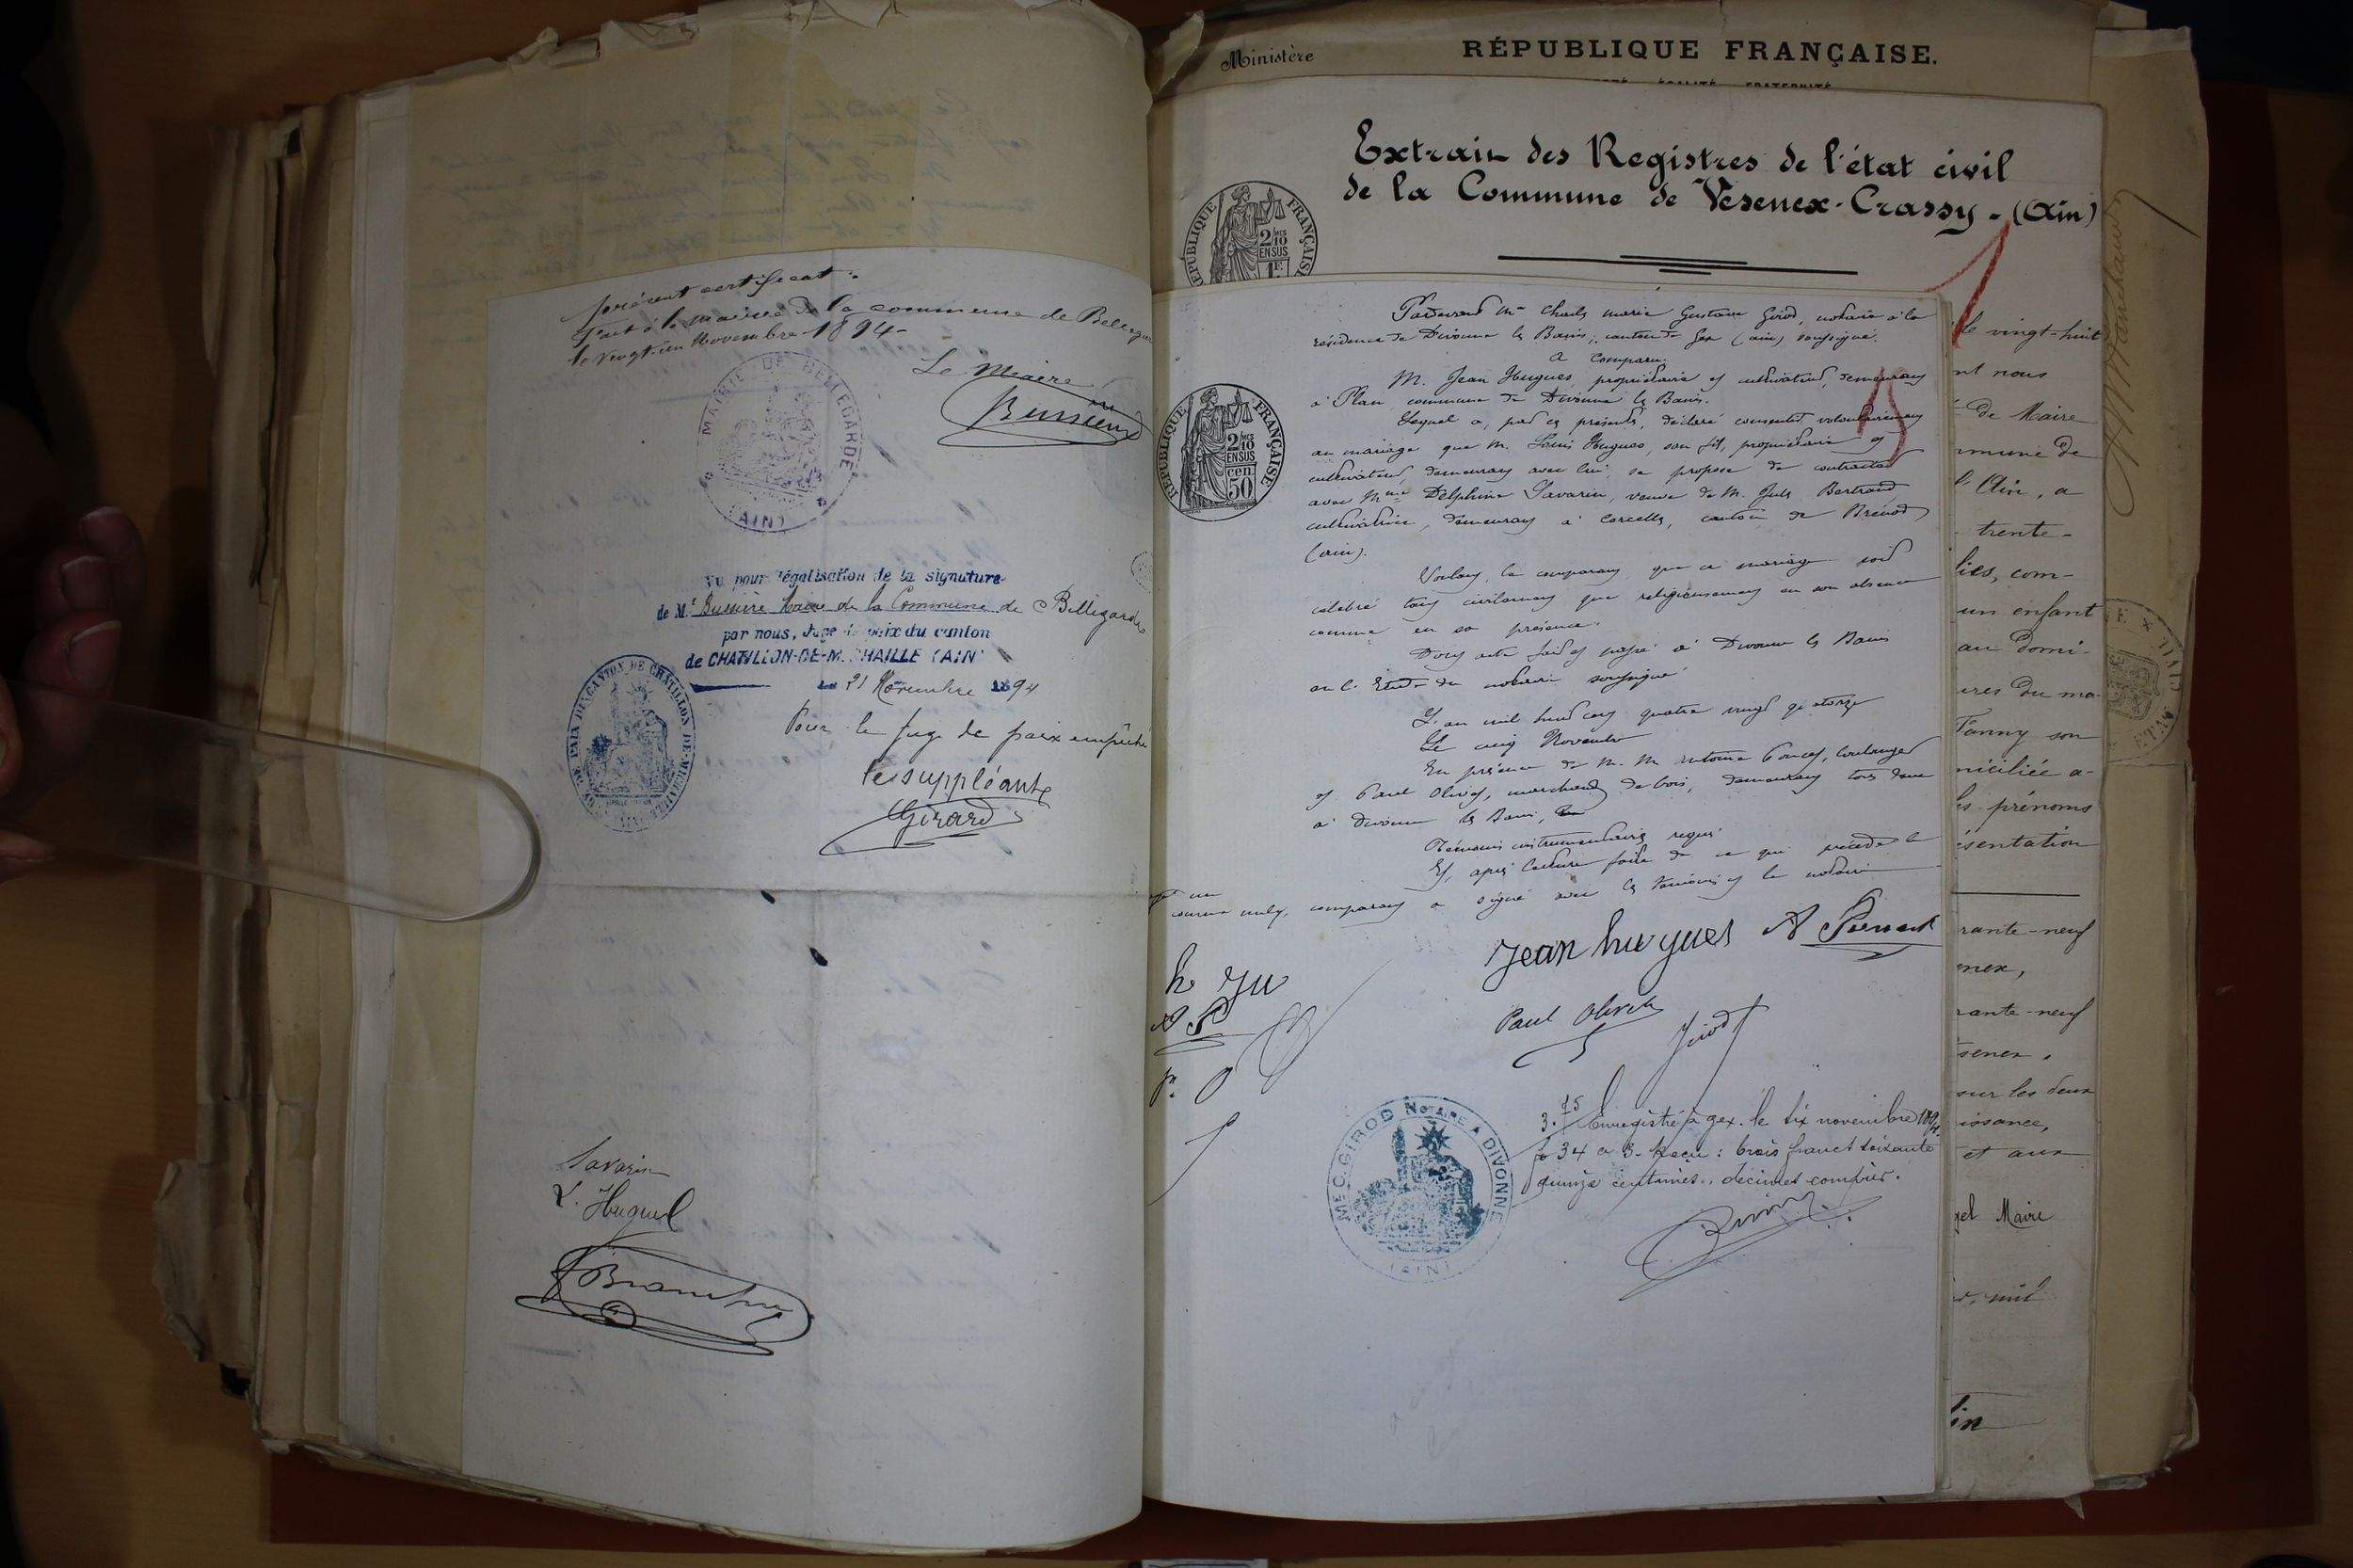 présent certificat.
fait à la mairie de la commune de Bellegarde
le vingt-un Novembre 1894
Le Maire
Bussière
MAIRIE DE BELLEGARDE
(AIN)
Vu pour légalisation de la signature
de Mr Bussière Maire de la Commune de Bellegarde
par nous, Juge de paix du canton
de CHATILLON-DE-MICHAILLE (AIN)
le 21 Novembre 1894
Pour le juge de paix empêché
le suppléant
Girard
Savarin
L. Hugues
Ministère
RÉPUBLIQUE FRANÇAISE.
Extrait des Registres de l'état civil
de la Commune de Vesenex-Crassy. (Ain)
RÉPUBLIQUE FRANÇAISE
2/10 EN SUS
1F
Pardevant Me Charles Marie Gustave Girod, notaire à la
résidence de Divonne les Bains, canton de Gex (ain) soussigné.
A comparu:
M. Jean Hugues, propriétaire et cultivateur, demeurant
à Plan, commune de Divonne les Bains.
Lequel a, par ces présentes, déclaré consentir volontairement
au mariage que M. Louis Hugues, son fils, propriétaire et
cultivateur, demeurant avec lui, se propose de contracter
avec Mme Delphine Savarin, veuve de M. Jules Bertrand,
cultivatrice, demeurant à Corcelles, canton de Brénod
(ain).
Voulant, le comparant, que ce mariage soit
célébré tant civilement que religieusement en son absence
comme en sa présence.
Dont acte fait et passé à Divonne les Bains
en l'Etude du notaire soussigné
L'an mil huit cent quatre vingt quatorze
Le cinq Novembre
En présence de M. M. Antoine Poncet, boulanger
et Paul Olivet, marchand de bois, demeurant tous deux
à Divonne les Bains,
Témoins instrumentaires requis.
Et, après lecture faite de ce qui précède le
comparant a signé avec les témoins et le notaire
RÉPUBLIQUE FRANÇAISE
2/10 EN SUS
50 cen
Jean hugues
Paul Olivet
Girod
h
P. O
Me C. GIROD NOTAIRE A DIVONNE
(AIN)
3.75
Enregistré à Gex. le six novembre 1894.
fo 34 c 3. Reçu: trois francs soixante
quinze centimes, décimes compris.
le vingt-huit
nt nous
de Maire
mmune de
l'Ain, a
trente-
lies, com-
un enfant
au domi-
ures du ma-
Fanny son
miciliée a-
les prénoms
ésentation
rante-neuf
enex,
rante-neuf
senex,
sur les deux
issance,
et aux
gel Maire
mil